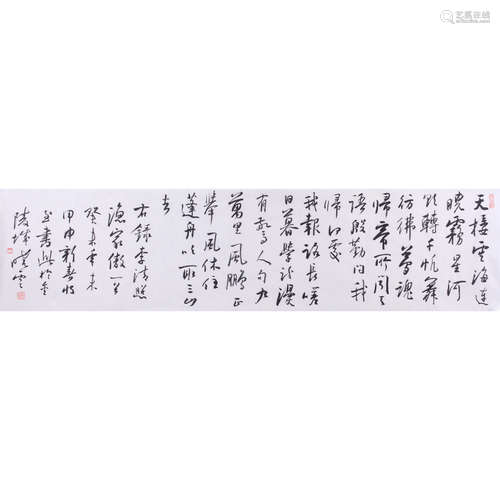 天接雲海連
晚霧星河
欲轉千帆舞
彷彿夢魂
歸帝所聞天
語殷勤問我
歸何處
我報路長嗟
日暮學詩漫
有驚人句九
萬里風鵬正
舉風休住
蓬舟吹取三山
去
右錄李清照
漁家傲一首
癸未年末
甲申新春將
至書此於金
陵
艺狐在线